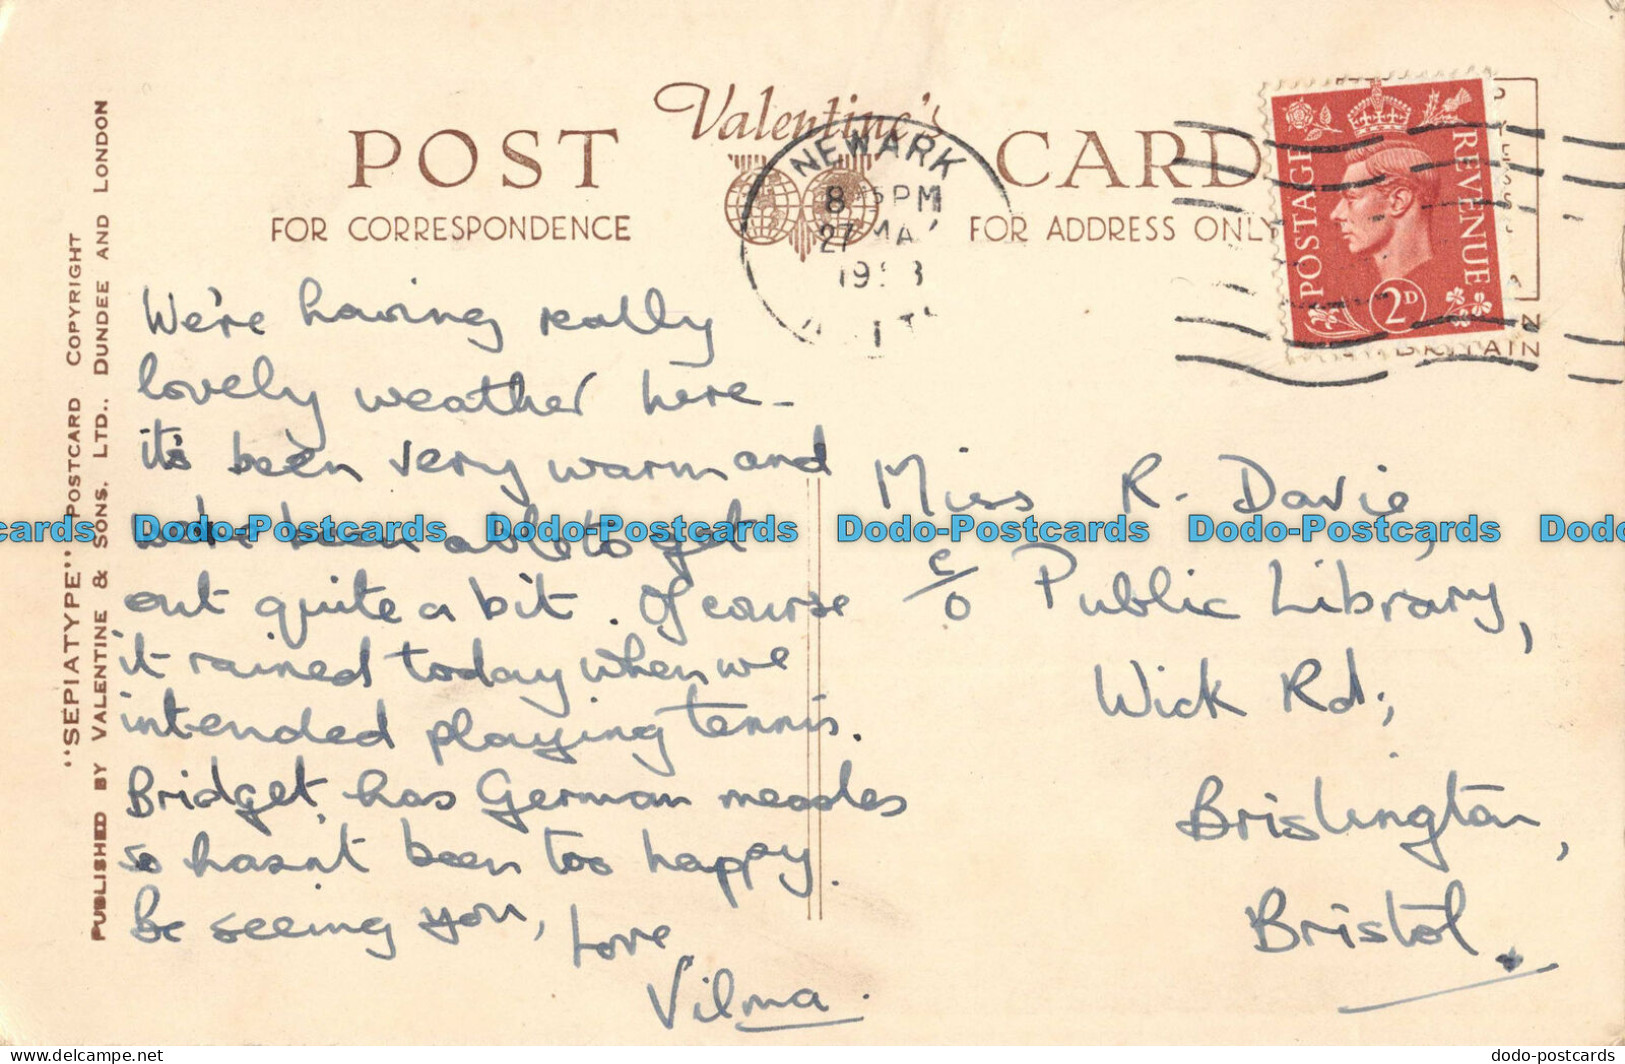 POST Valentine's CARD
FOR CORRESPONDENCE
FOR ADDRESS ONLY
NEWARK
PM
27 MA
POSTAGE REVENUE
2D
"SEPIATYPE" POSTCARD COPYRIGHT
PUBLISHED BY VALENTINE & SONS. LTD.. DUNDEE AND LONDON
We're having really
lovely weather here -
it's been very warm and
been able to get
out quite a bit. Of course
it rained today when we
intended playing tennis.
Bridget has German measles
so hasn't been too happy.
Be seeing you,
Love
Vilma.
Miss R. Davie,
c/o Public Library,
Wick Rd,
Brislington,
Bristol.
Dodo-Postcards Dodo-Postcards Dodo-Postcards Dodo-Postcards
delcampe.net
dodo-postcards